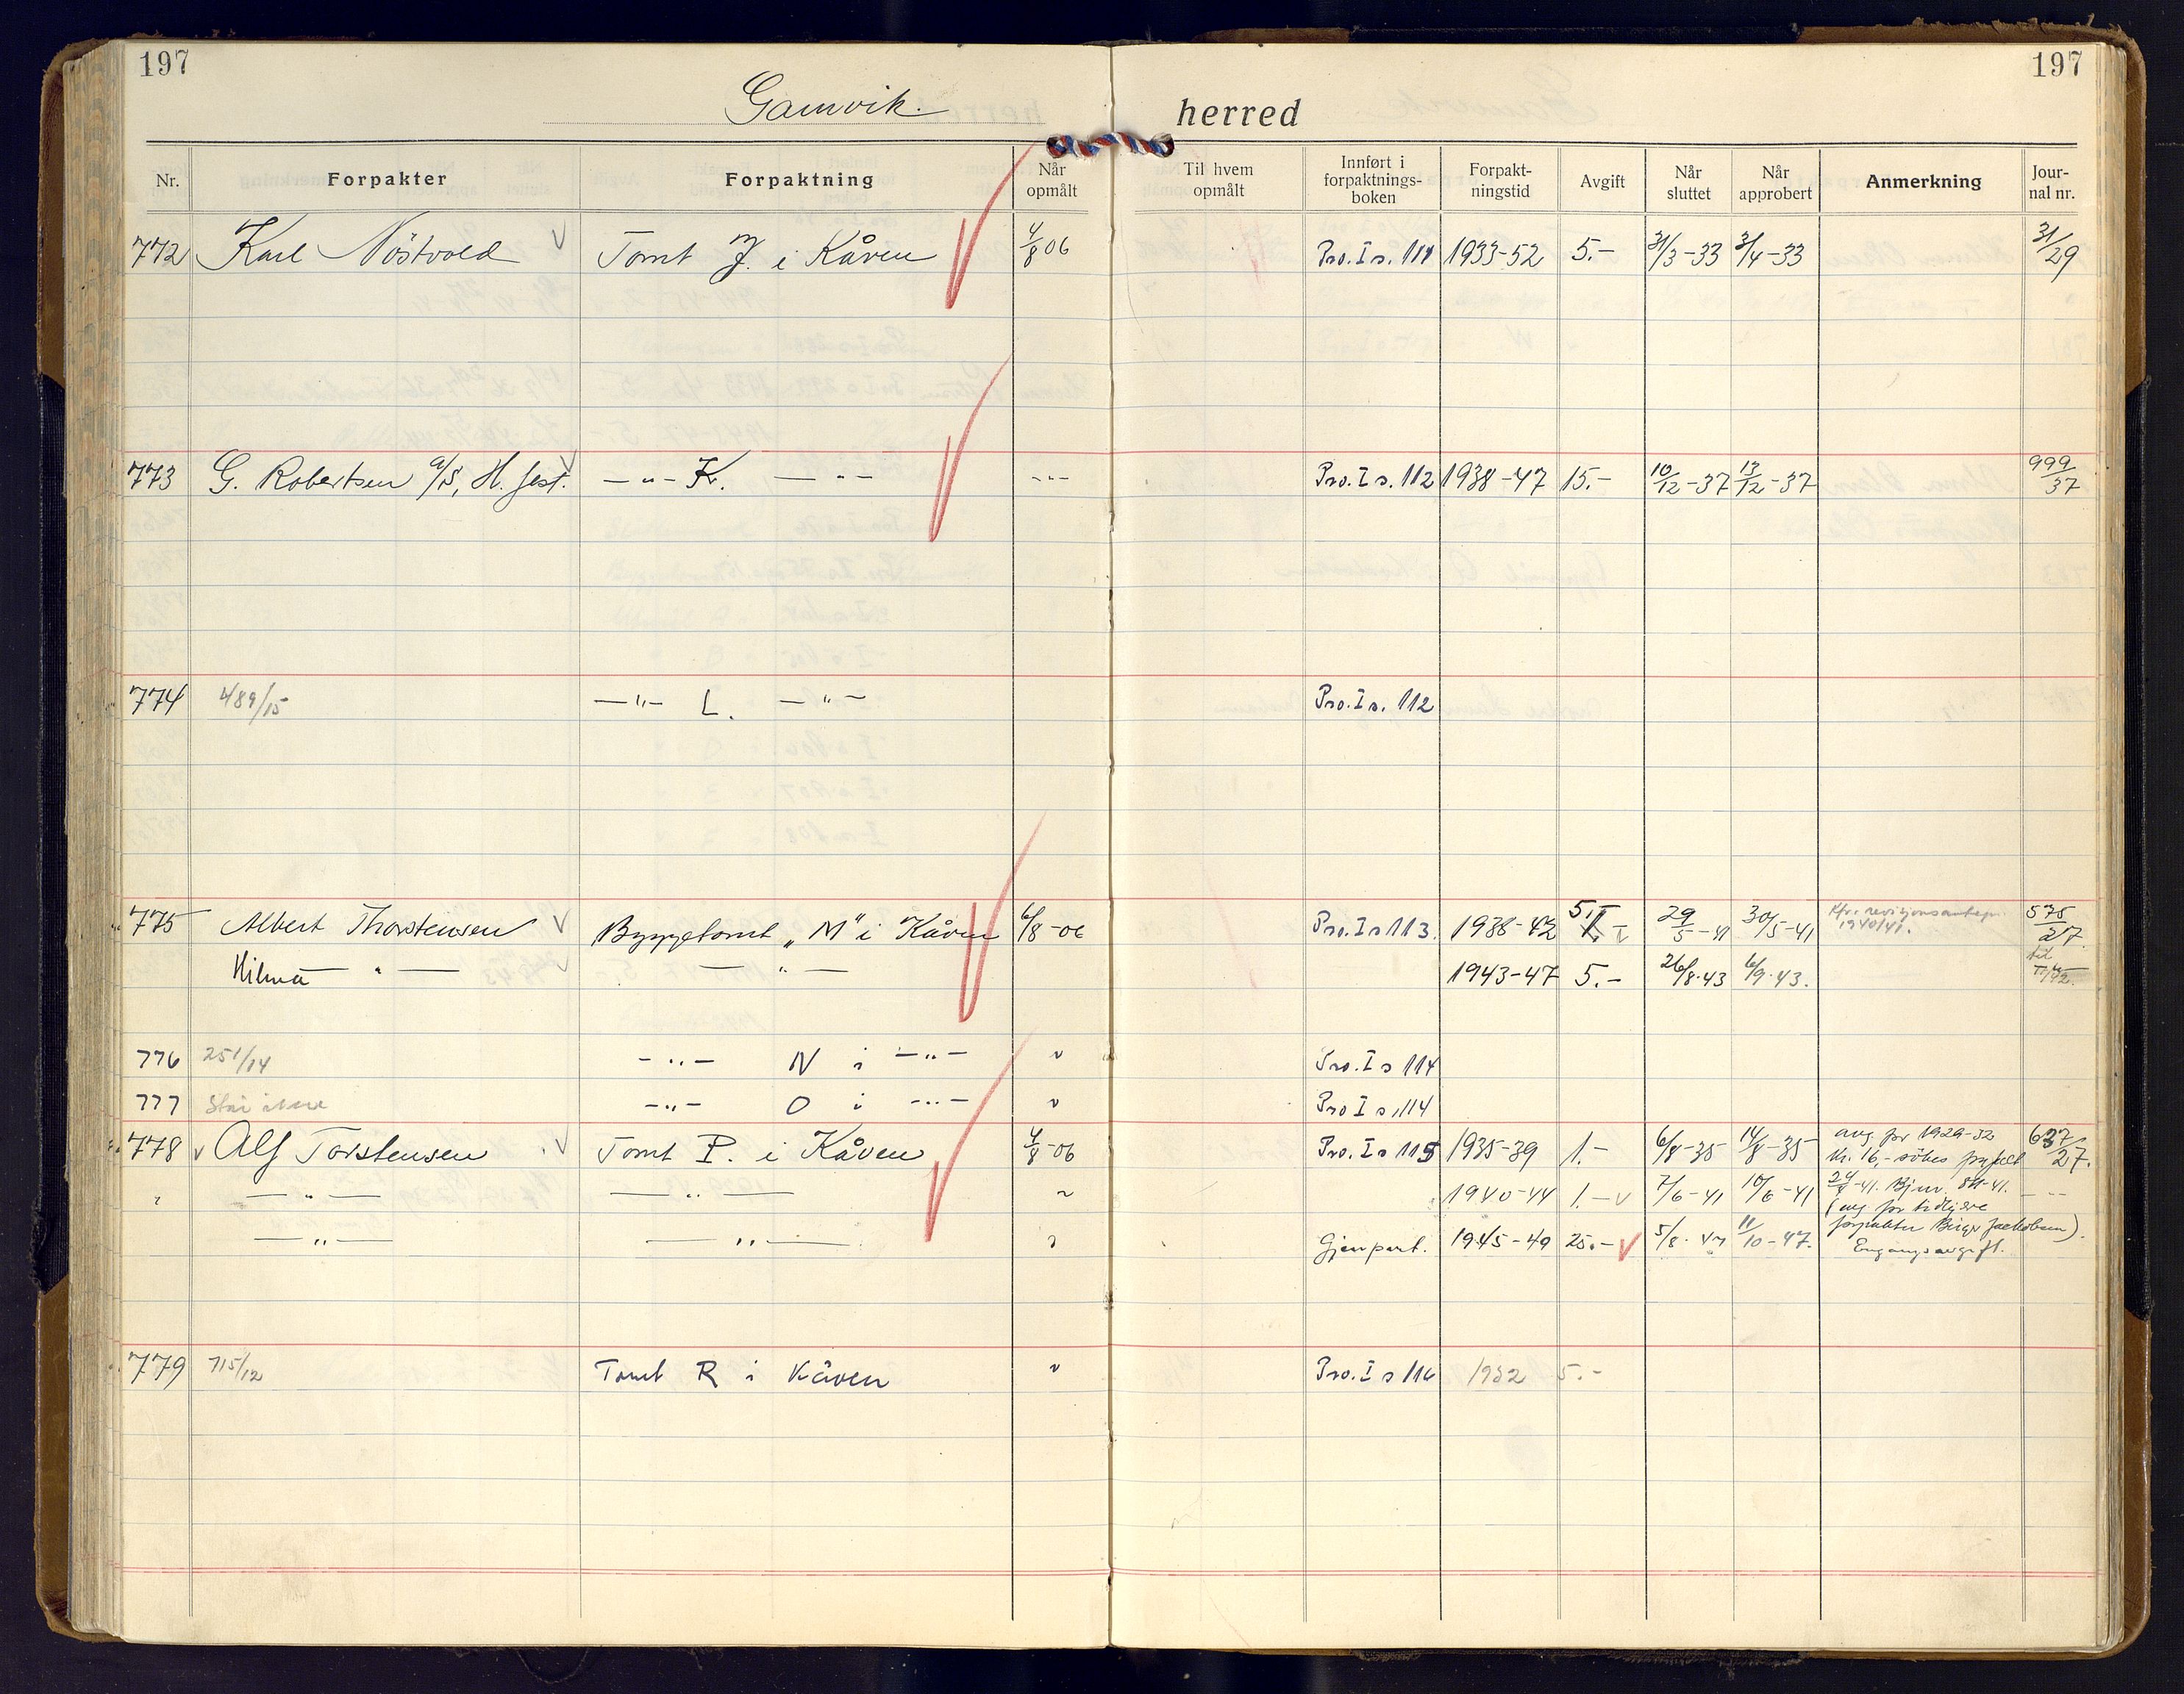 197 197
Gamvik. herred
Nr. Forpakter Forpaktning Når opmålt Til hvem opmålt Innført i forpaktnings-boken Forpakt-ningstid Avgift Når sluttet Når approbert Anmerkning Jour-nal nr.
772 Karl Nöstvold Tomt J. i Kåven 4/8 06 Pro. I s. 111 1933-52 5.- 31/3-33 3/4-33 31/29
773 G. Robertsen A/S, H.fest. —„— K. —„— -„- Pro. I s. 112 1938-47 15.- 10/12-37 13/12-37 999/37
774 489/15 —„— L. —„— Pro. I s. 112
775 Albert Thorstensen Byggetomt „M" i Kåven 6/8-06 Pro. I s 113. 1938-42 5,- 29/5-41 30/5-41 Kfr. revisjonsantegn. 1940/41. 575/27.
Hilma —„— —„— 1943-47 5.- 26/8.43 6/9.43. til
776 251/14 —„— N i —„— „ Pro. I s 114
777 Står ikke —„— O i —„— „ Pro I s. 114
778 Alf Torstensen Tomt P. i Kåven 4/8-06 Pro. I s 115 1935-39 1.- 6/8-35 14/8-35 avg. for 1929-32 637/27.
kr. 16,- sökes
„ —„— —„— „ 1940-44 1.- 7/6-41 10/6-41 -41. Bjur. -41. -„-
(avg. for tidligere
forpakter Birger Jackobsen).
—„— —„— „ Gjenpart. 1945-49 25.- 5/8.47 11/10-47. Engangsavgift.
779 715/12 Tomt R i Kåven „ Pro. I s 116 1932 5.-